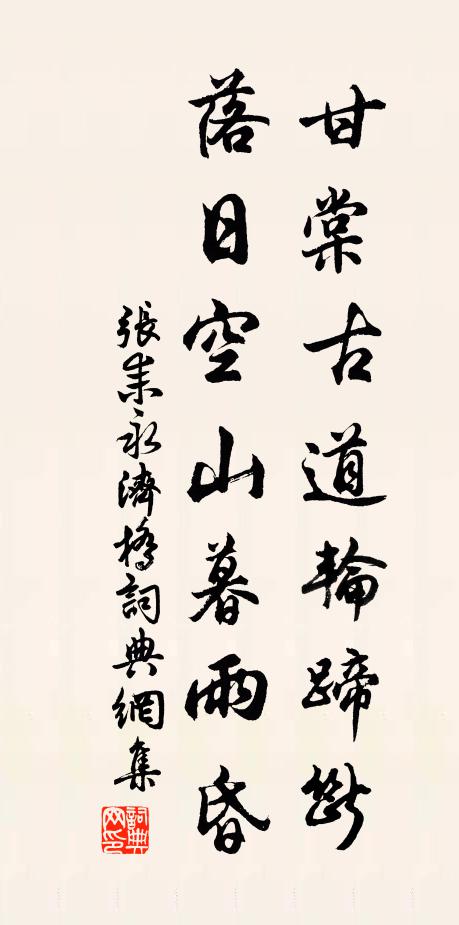 甘棠古道輪蹄斷
落日空山暮雨昏
張耒永濟橋詞典網集
詞典網印